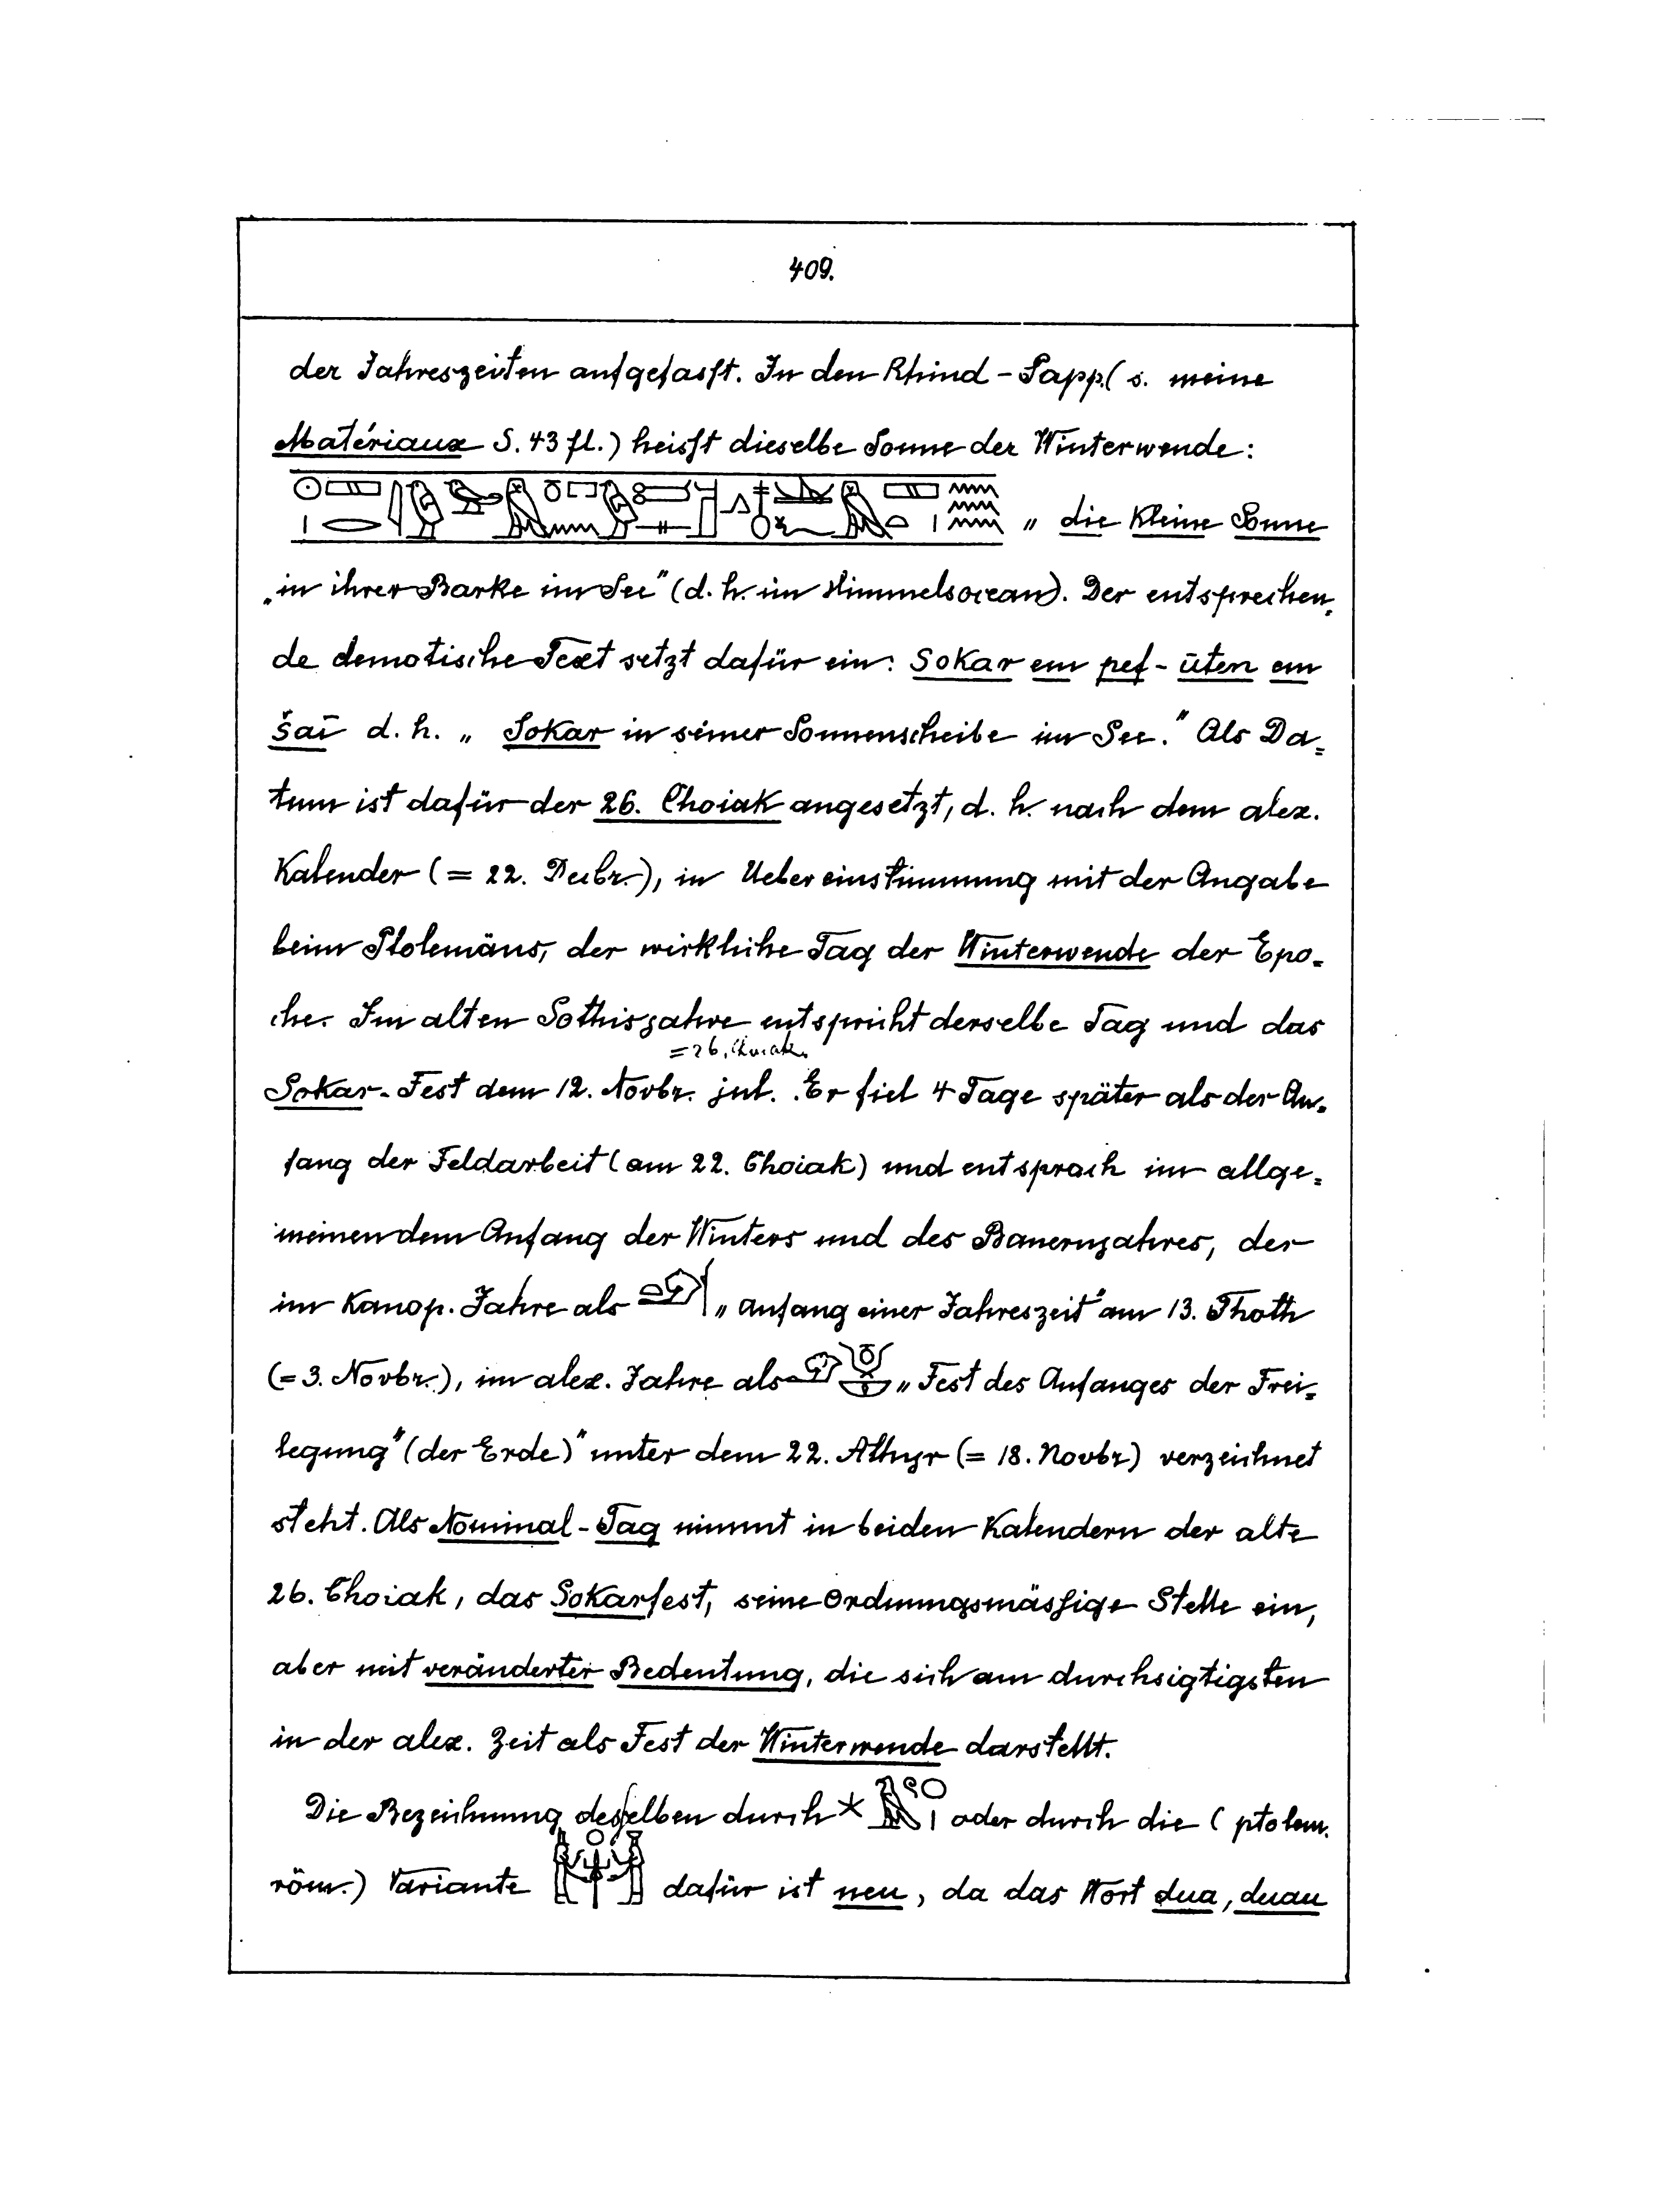 409.
der Jahreszeiten aufgefasst. In den Rhind-Papp. (s. meine
Matériaux S. 43 fl.) heisst dieselbe Sonne der Winterwende:
„ die kleine Sonne
„in ihrer Barke im See" (d. h. im Himmelsocean). Der entsprechen,
de demotische Text setzt dafür ein: Sokar em pef-ūten em
šaī d. h. „ Sokar in seiner Sonnenscheibe im See." Als Da=
tum ist dafür der 26. Choiak angesetzt, d. h. nach dem alex.
Kalender (= 22. Decbr.), in Uebereinstimmung mit der Angabe
beim Ptolemäus, der wirkliche Tag der Winterwende der Epo-
che. Im alten Sothisjahre entspricht derselbe Tag und das
= 26. Choiak.
Sokar-Fest dem 12. Novbr. jul. Er fiel 4 Tage später als der An-
fang der Feldarbeit (am 22. Choiak) und entsprach im allge=
meinen dem Anfang der Winters und des Bauernjahres, der
im Kanop. Jahre als „ Anfang einer Jahreszeit" am 13. Thoth
(= 3. Novbr.), im alex. Jahre als „ Fest des Anfanges der Frei=
legung" (der Erde)" unter dem 22. Athyr (= 18. Novbr) verzeichnet
steht. Als Nominal-Tag nimmt in beiden Kalendern der alte
26. Choiak, das Sokarfest, seine ordnungsmässige Stelle ein,
aber mit veränderter Bedeutung, die sich am durchsigtigsten
in der alex. Zeit als Fest der Winterwende darstellt.
Die Bezeichnung desselben durch oder durch die (ptolem.
röm.) Variante dafür ist neu, da das Wort dua, duau